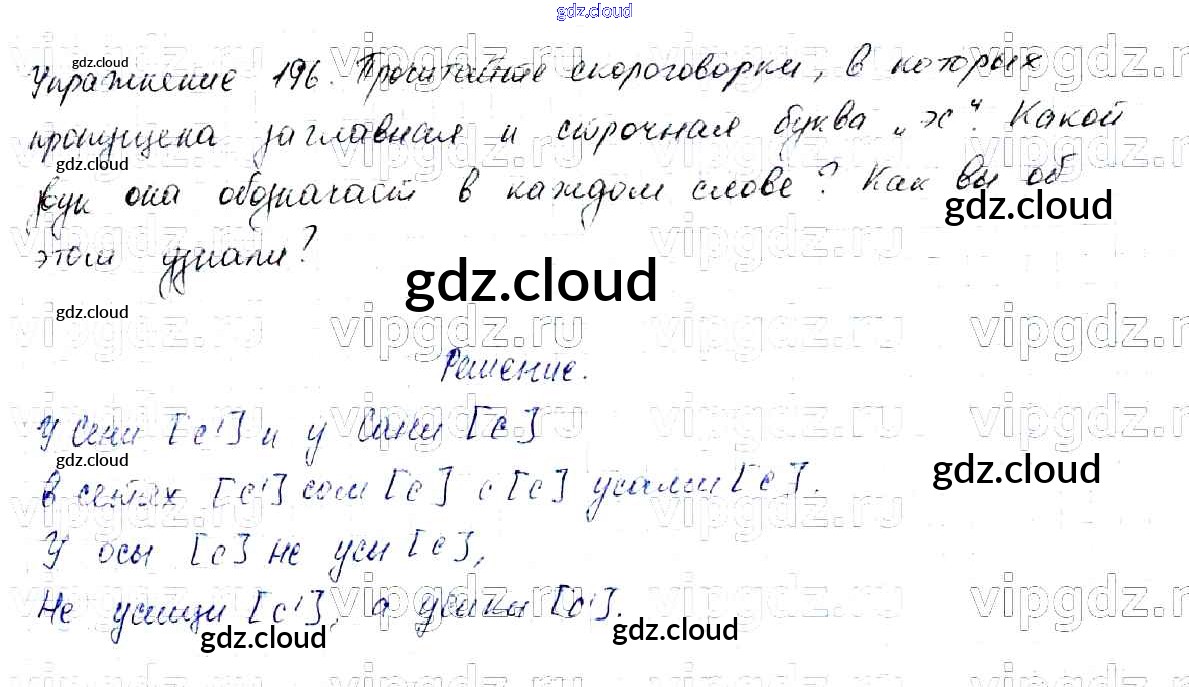 gdz.cloud
gdz.cloud
Упражнение 196. Прочитайте скороговорки, в которых
пропущена заглавная и строчная буква „эс". Какой
gdz.cloud
звук она обозначает в каждом слове? Как вы об
gdz.cloud
этом узнали?
gdz.cloud
gdz.cloud
Решение.
У Сени [с'] и у Сани [с]
gdz.cloud
gdz.cloud
В сетях [с'] сом [с] с [с] усами [с].
У осы [с] не усы [с],
Не усищи [с'], а усики [с'].
gdz.cloud
gdz.cloud
vipgdz.ru